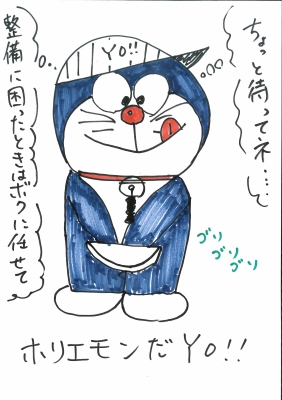 ちょっと待ってネ…
YO!!
整備に困ったときはボクに任せて
ゴリ
ゴリ
ゴリ
ホリエモンだYO!!